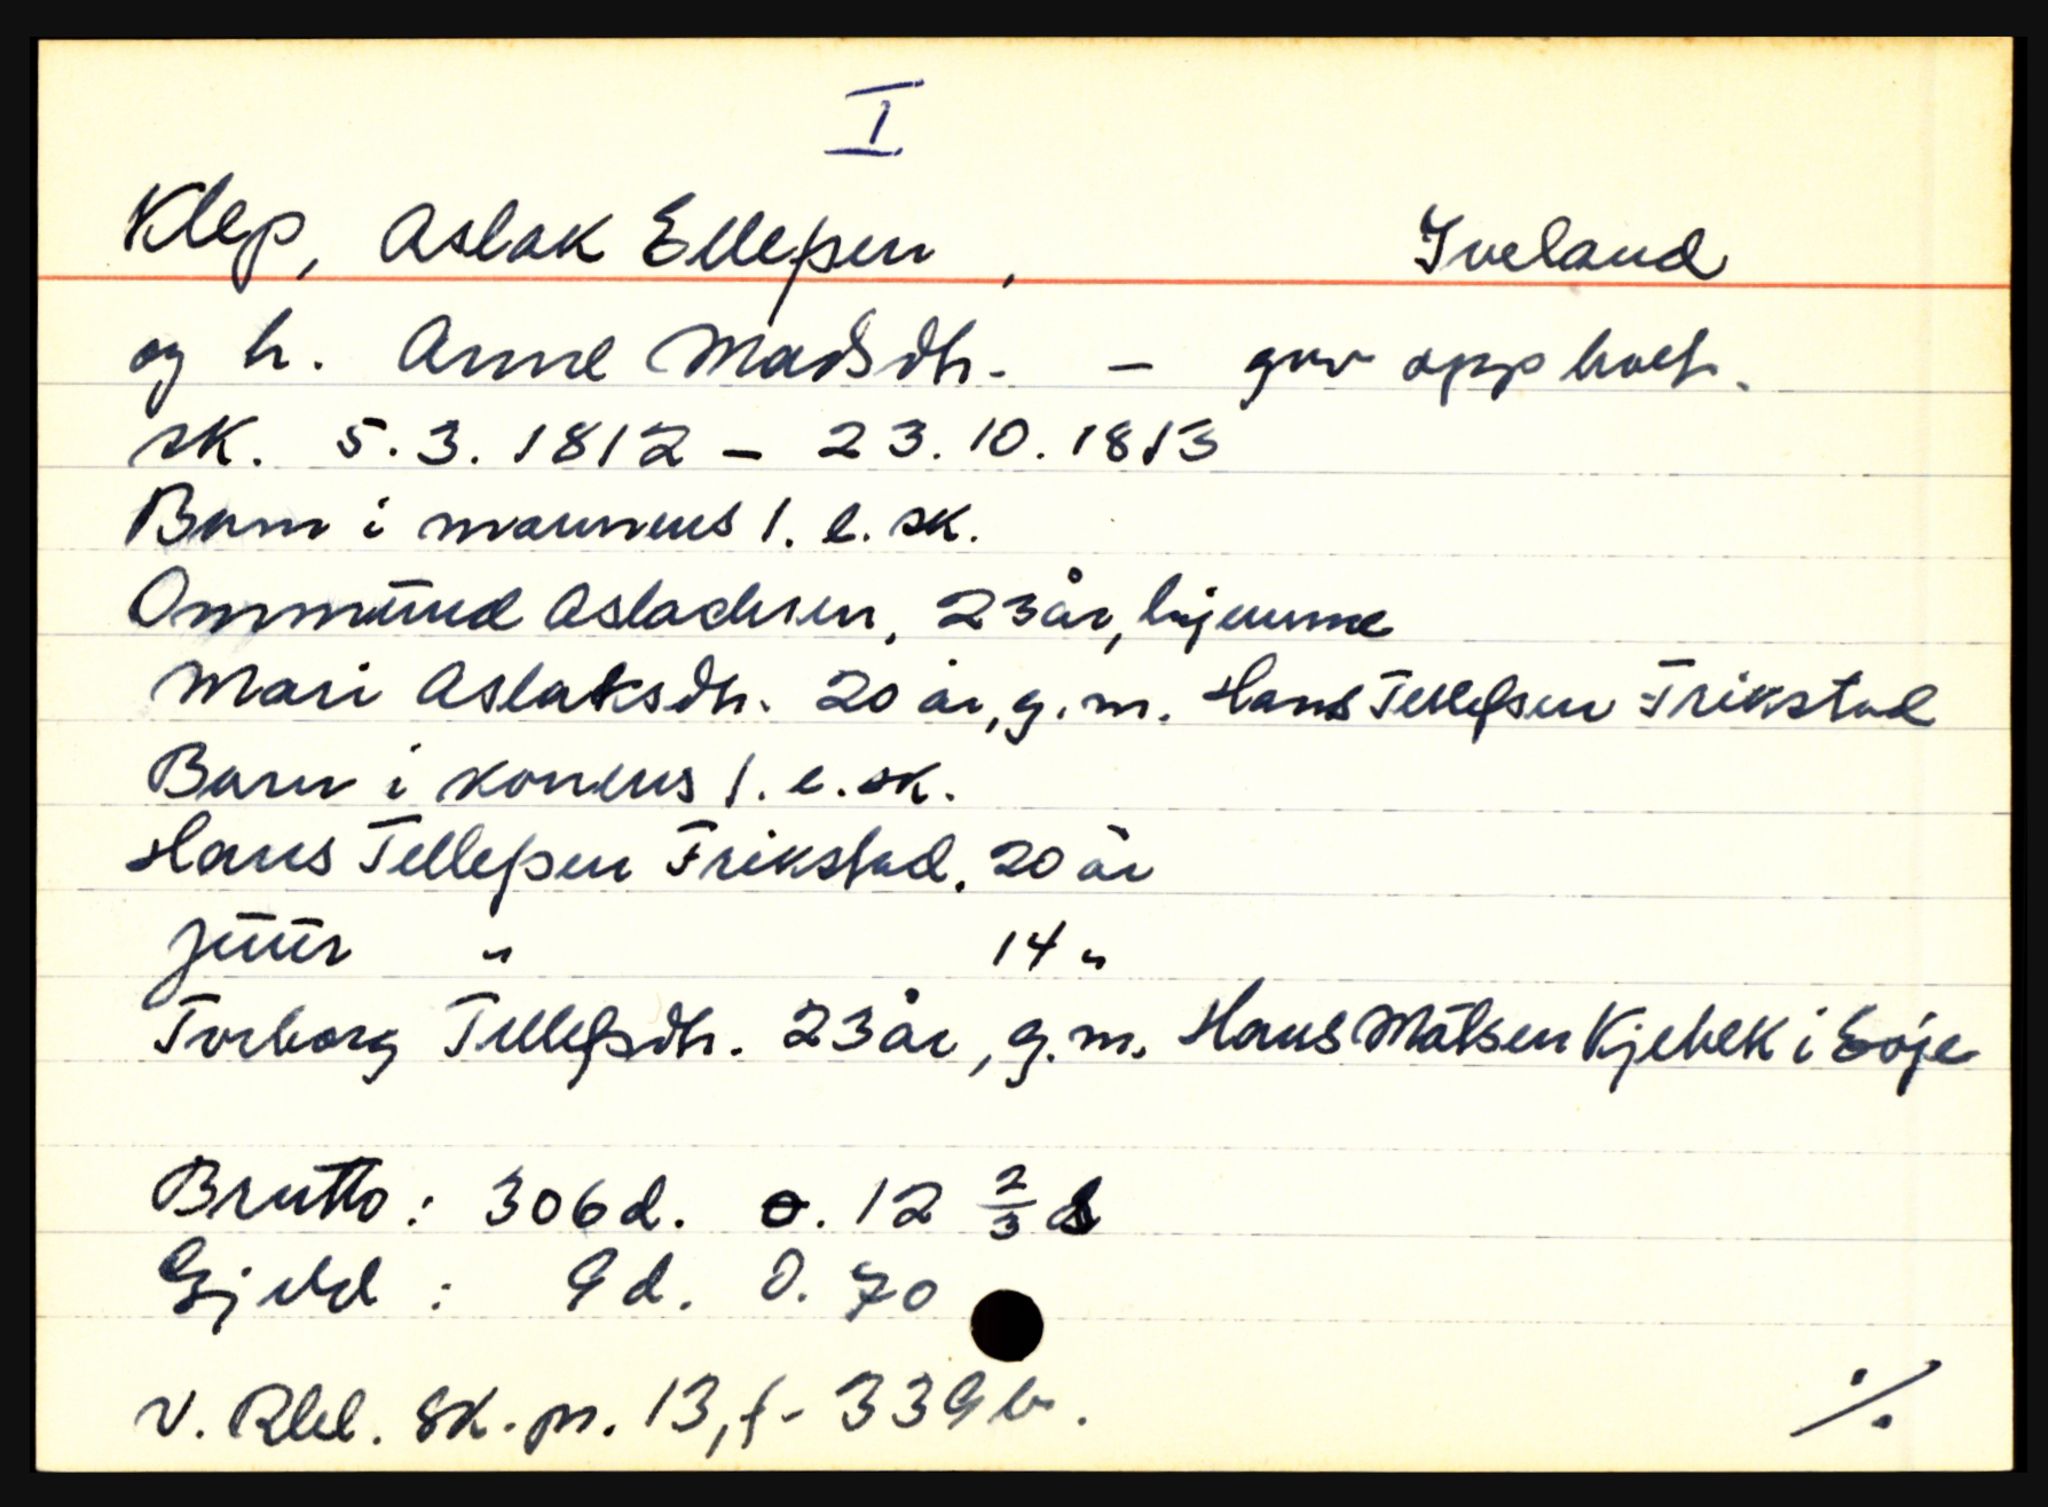 I
Klep, Aslak Ellefsen, Iveland
og h. Anne Madsdtr. - gav opp boet.
sk. 5.3.1812 - 23.10.1813
Barn i mannens 1. e. sk.
Ommund Aslachsen, 23 år, hjemme
Mari Aslaksdtr. 20 år, g.m. Hans Tellefsen Frikstad
Barn i konens 1. e. sk.
Hans Tellefsen Frikstad. 20 år
" 14 "
Torborg Tellefsdtr. 23 år, g.m. Hans Matsen Kjebek i Evje
Brutto: 306 d. 0. 12 2/3 s
Gjeld: 9 d. 0. 70
V. Rbl. sk. pr. 13, f. 339 b.
./.